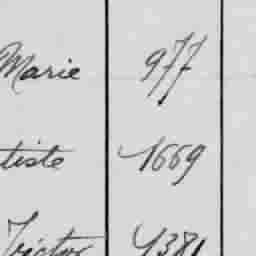 Marie 977
tiste 1669
Victor 4381